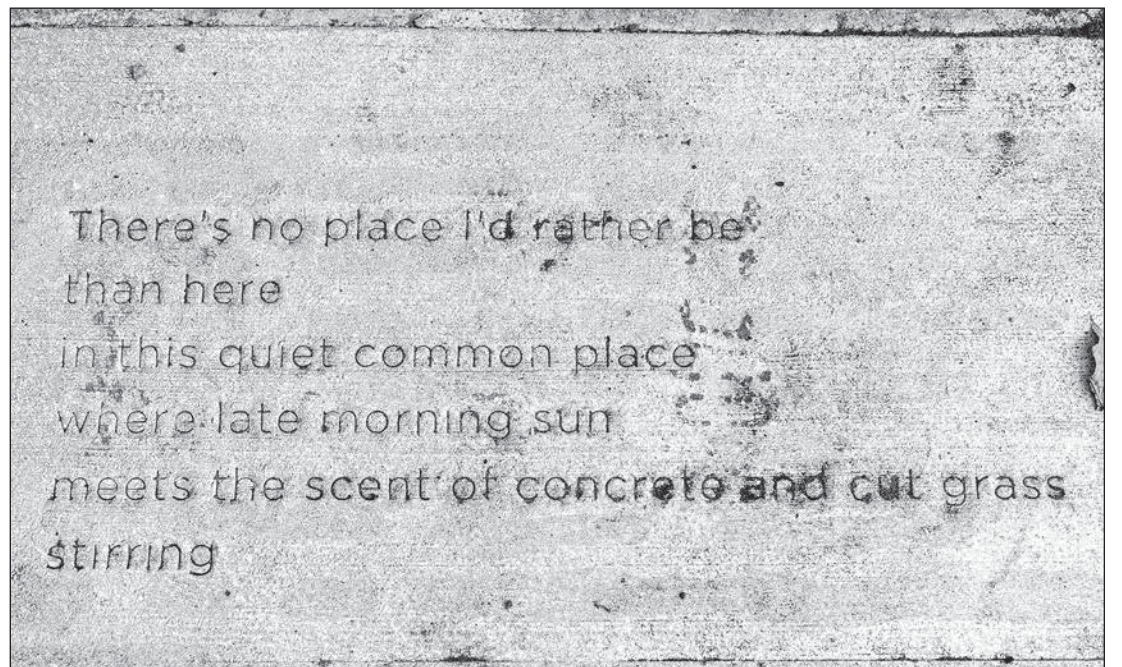 There's no place I'd rather be
than here
in this quiet common place
where late morning sun
meets the scent of concrete and cut grass
stirring